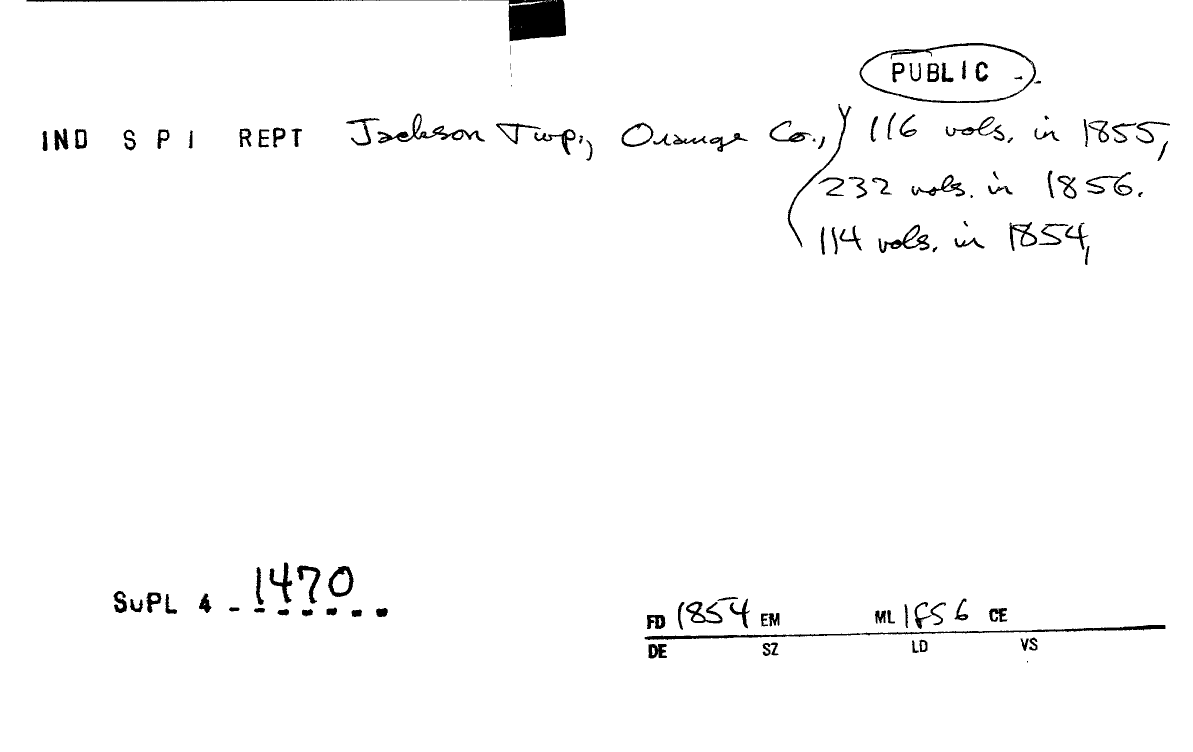 PUBLIC
IND S P I REPT Jackson Twp., Orange Co., 116 vols. in 1855,
232 vols. in 1856.
114 vols. in 1854,
SuPL 4 - 1470
FD 1854 EM ML 1856 CE
DE SZ LD VS